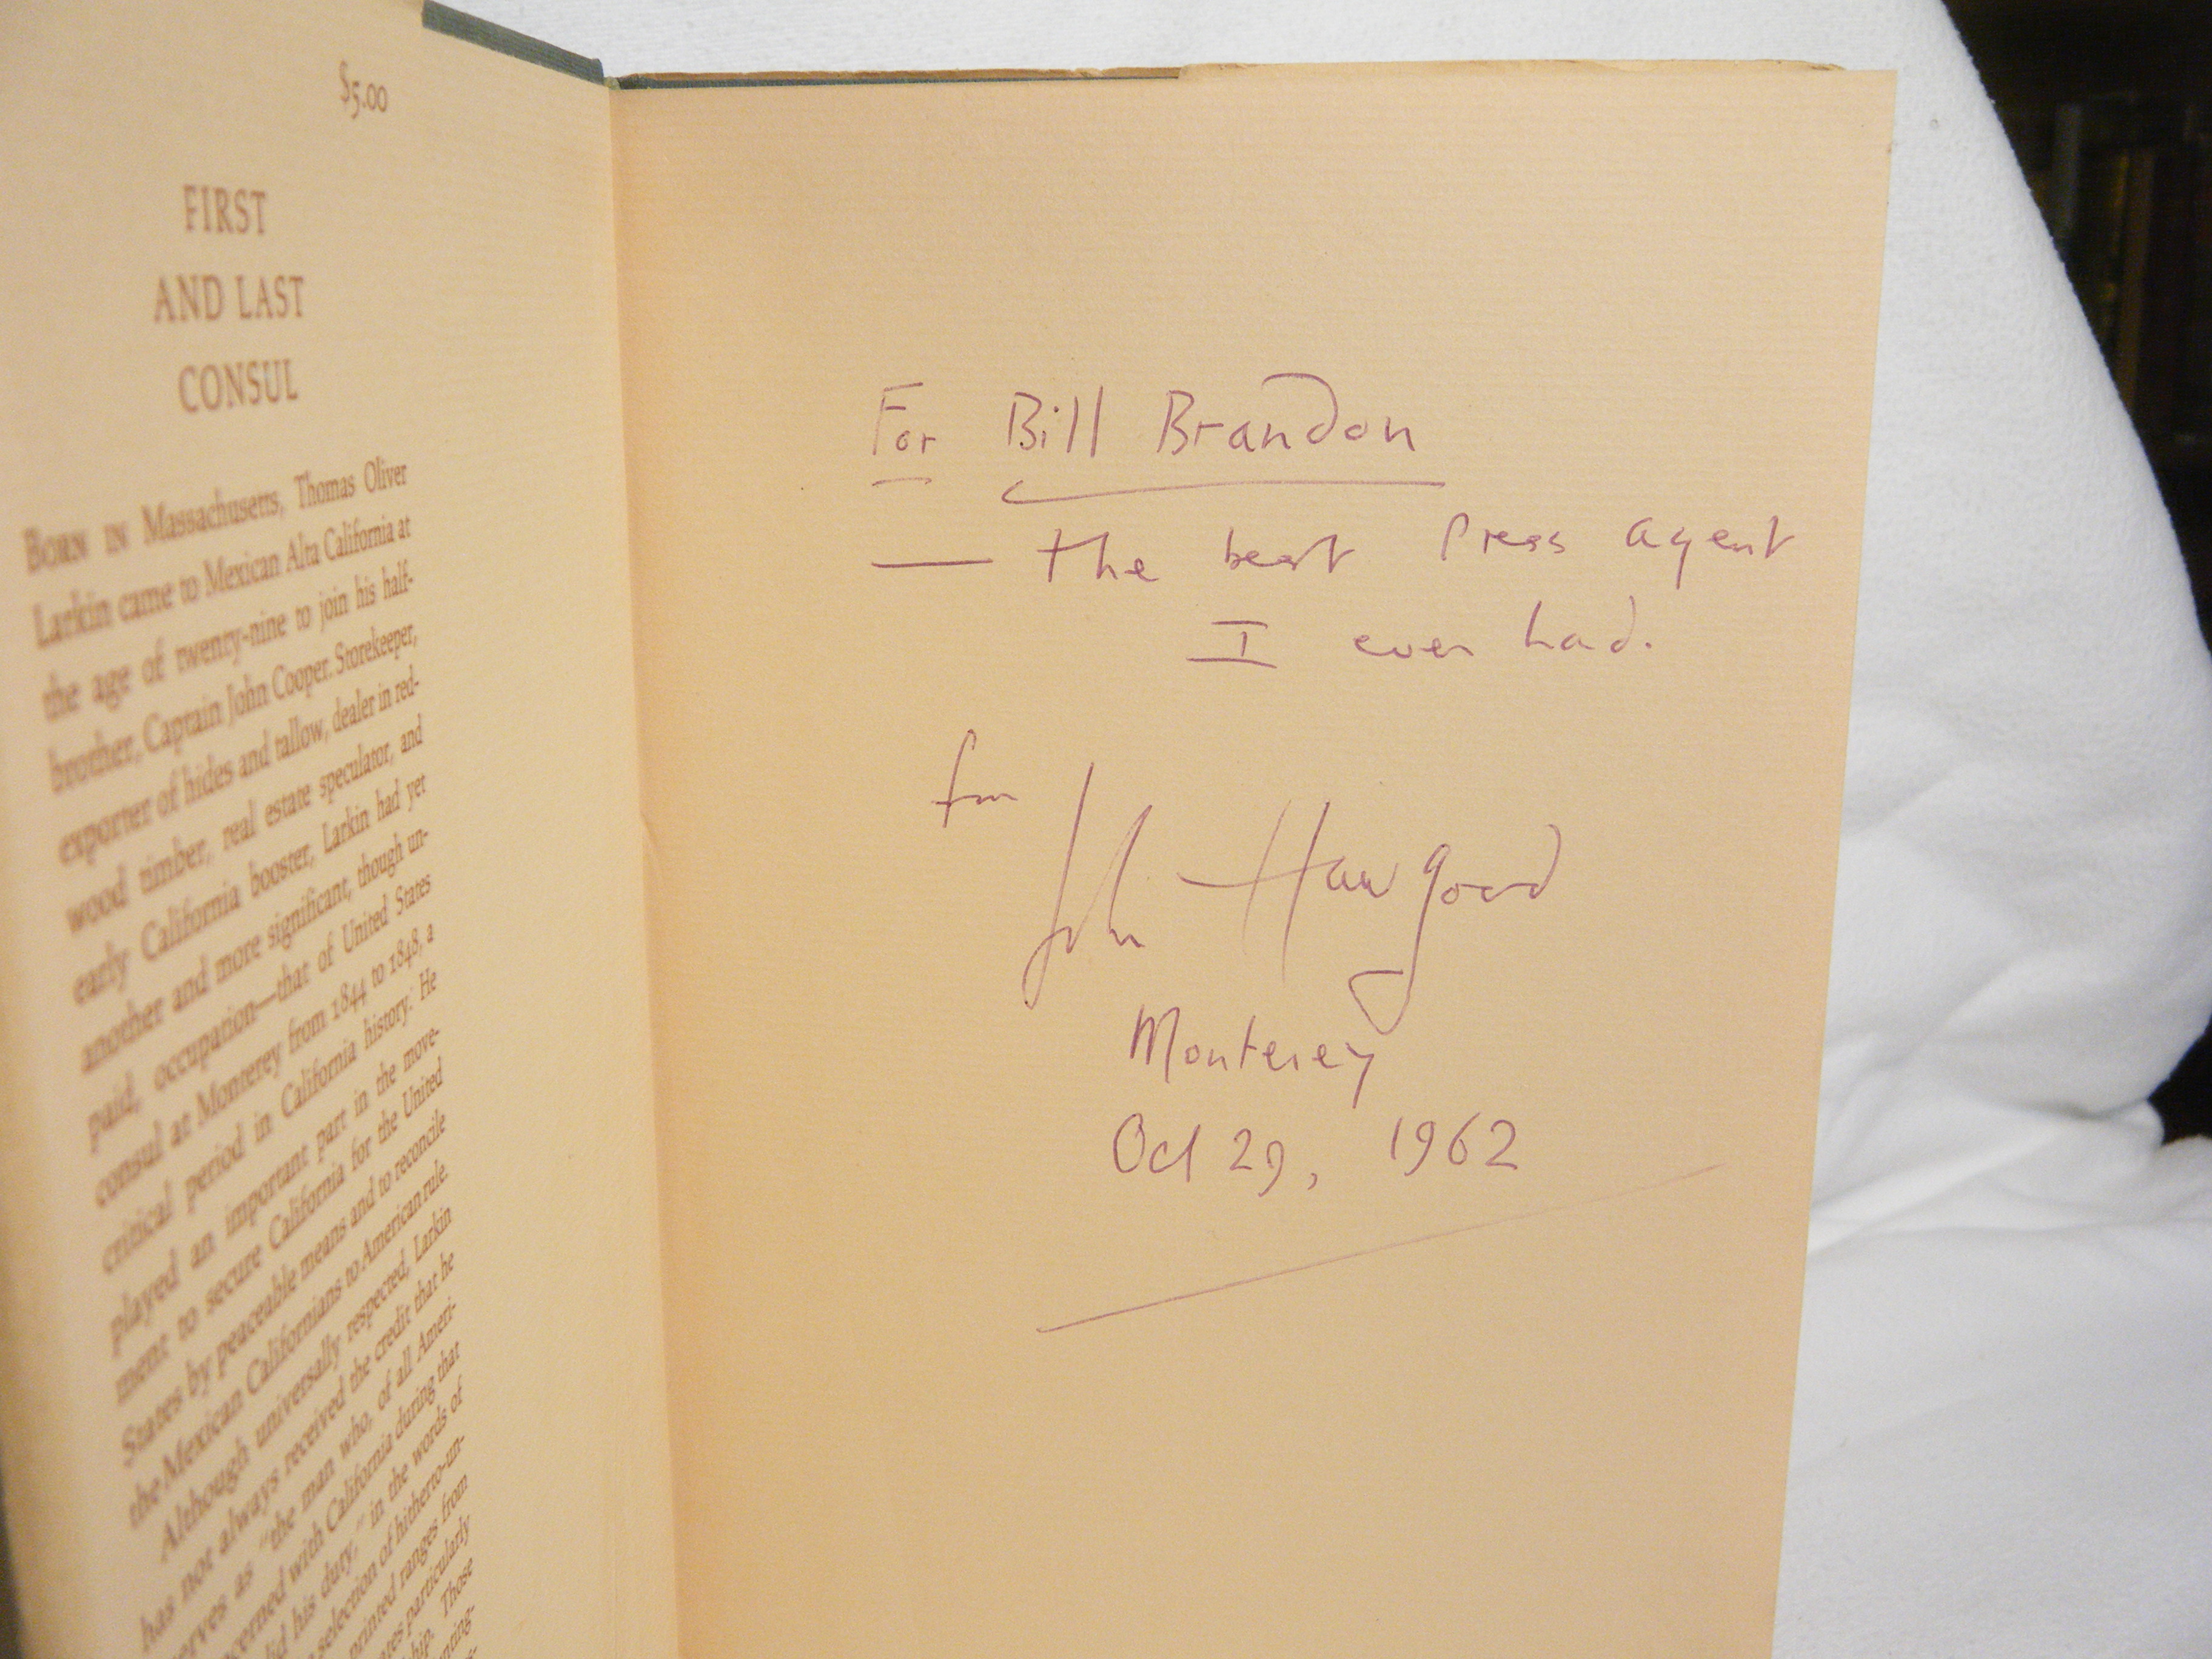 $5.00
FIRST
AND LAST
CONSUL
BORN IN Massachusetts, Thomas Oliver
Larkin came to Mexican Alta California at
the age of twenty-nine to join his half-
brother, Captain John Cooper. Storekeeper,
exporter of hides and tallow, dealer in red-
wood timber, real estate speculator, and
early California booster, Larkin had yet
another and more significant, though un-
paid, occupation—that of United States
consul at Monterey from 1844 to 1848, a
critical period in California history. He
played an important part in the move-
ment to secure California for the United
States by peaceable means and to reconcile
the Mexican Californians to American rule.
Although universally respected, Larkin
has not always received the credit that he
erves as "the man who, of all Ameri-
cerned with California during that
did his duty," in the words of
selection of hitherto-un-
printed ranges from
particularly
hip. Those
For Bill Brandon
— the best press agent
I ever had.
from
John Hawgood
Monterey
Oct 29, 1962